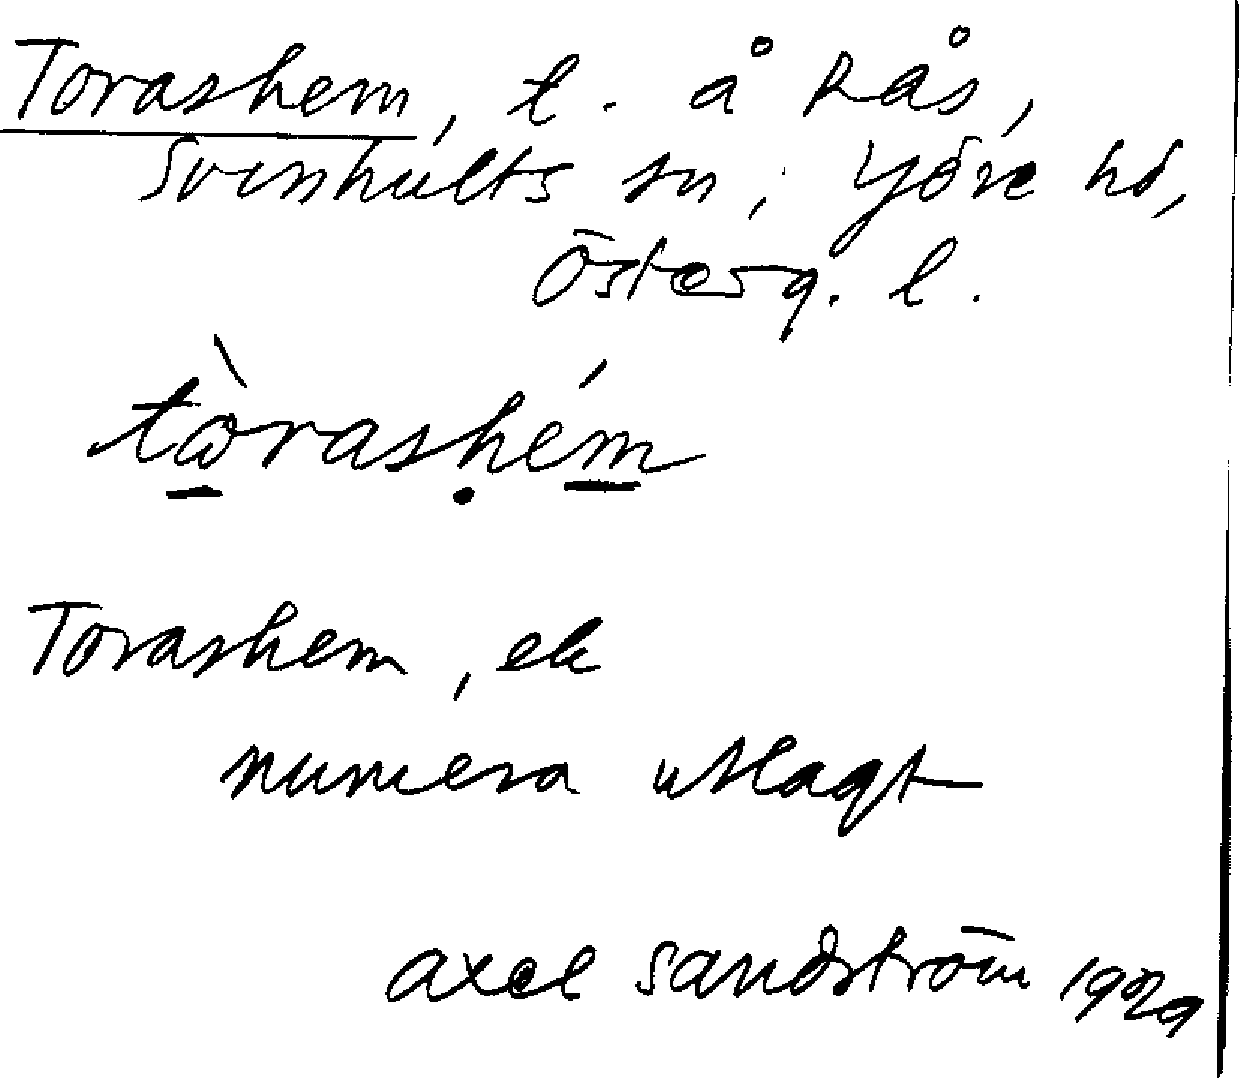 Torashem, t. å Rås,
Svinhults sn; Ydre hd,
Österg. l.
tòrashém
Torashem, ek
numera utlagt
axel Sandström 1929